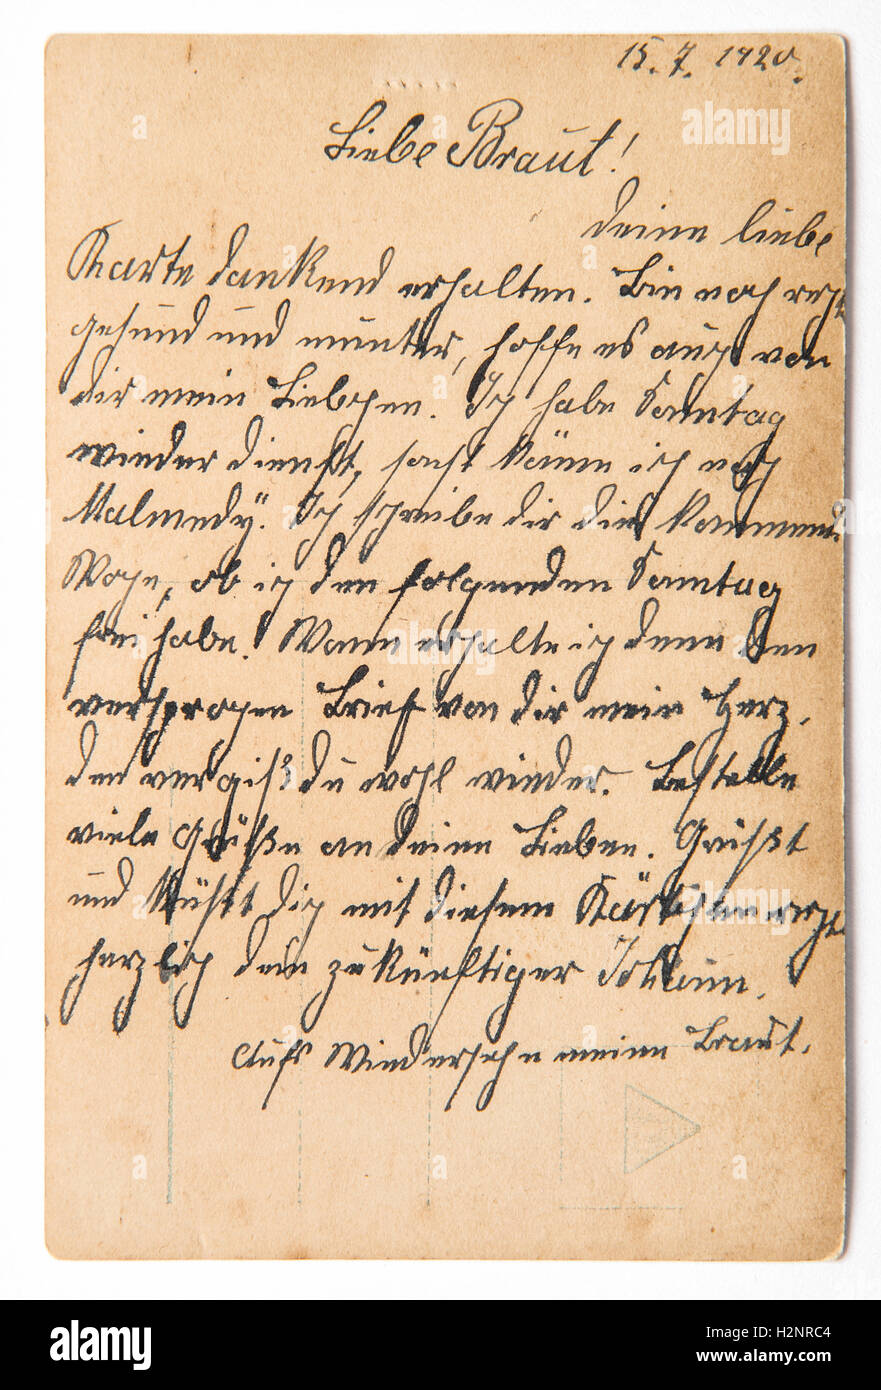 15.7. 1920.
Liebe Braut!
Deine liebe
Karte dankend erhalten. Bin noch recht
gesund und munter, hoffe es auch von
dir mein Liebchen. Ich habe Sonntag
wieder Dienst, sonst käme ich nach
Malmedy. Ich schreibe dir die kommende
Woche, ob ich den folgenden Sonntag
frei habe. Wann erhalte ich denn den
versprochen Brief von dir mein Herz,
den vergißt du wohl wieder. Bestelle
viele Grüße an deine Lieben. Grüßt
und küßt dich mit diesem Kärtchen recht
herzlich dein zukünftiger Johann.
Aufs Wiedersehn meine Braut.
alamy
a
alamy
Image ID: H2NRC4
www.alamy.com